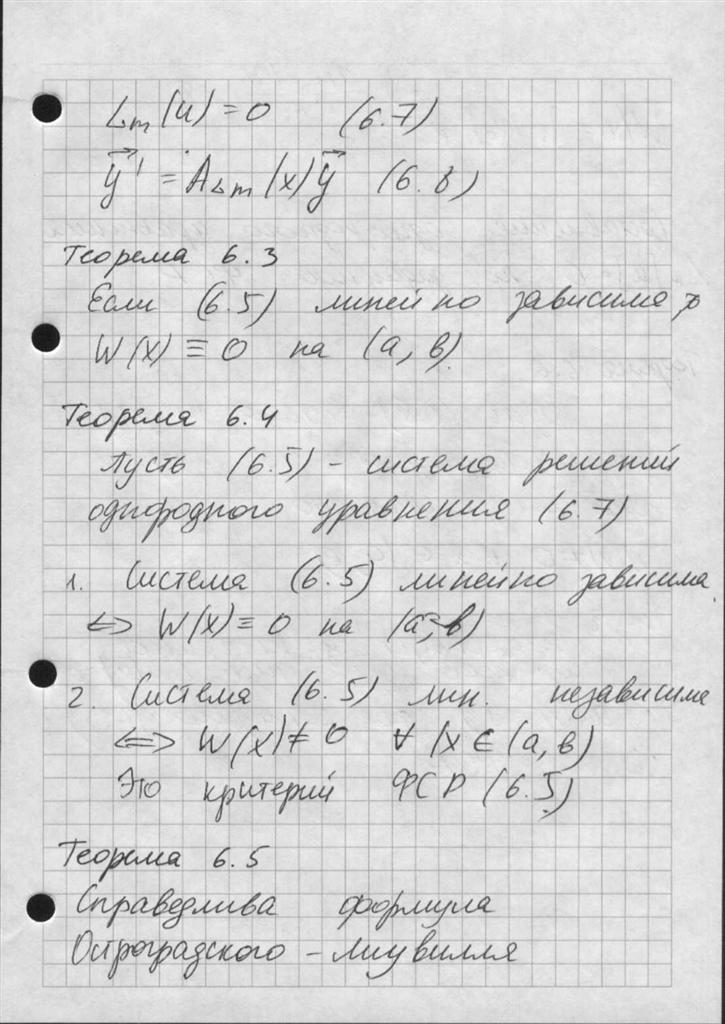 Lm(u) = 0 (6.7)
y⃗' = A_Lm(x)y⃗ (6.8)
Теорема 6.3
Если (6.5) линейно зависима, то
W(x) ≡ 0 на (a, в)
Теорема 6.4
Пусть (6.5) - система решений
однородного уравнения (6.7)
1. Система (6.5) линейно зависима
<=> W(x) ≡ 0 на (a, в)
2. Система (6.5) лин. независима
<=> W(x) ≠ 0 ∀ x ∈ (a, в)
Это критерий ФСР (6.5)
Теорема 6.5
Справедлива формула
Остроградского - Лиувилля